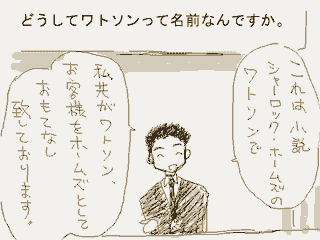 どうしてワトソンって名前なんですか。
これは小説
シャーロック・ホームズの
ワトソンで
私共がワトソン、
お客様をホームズとして
おもてなし
致しております。